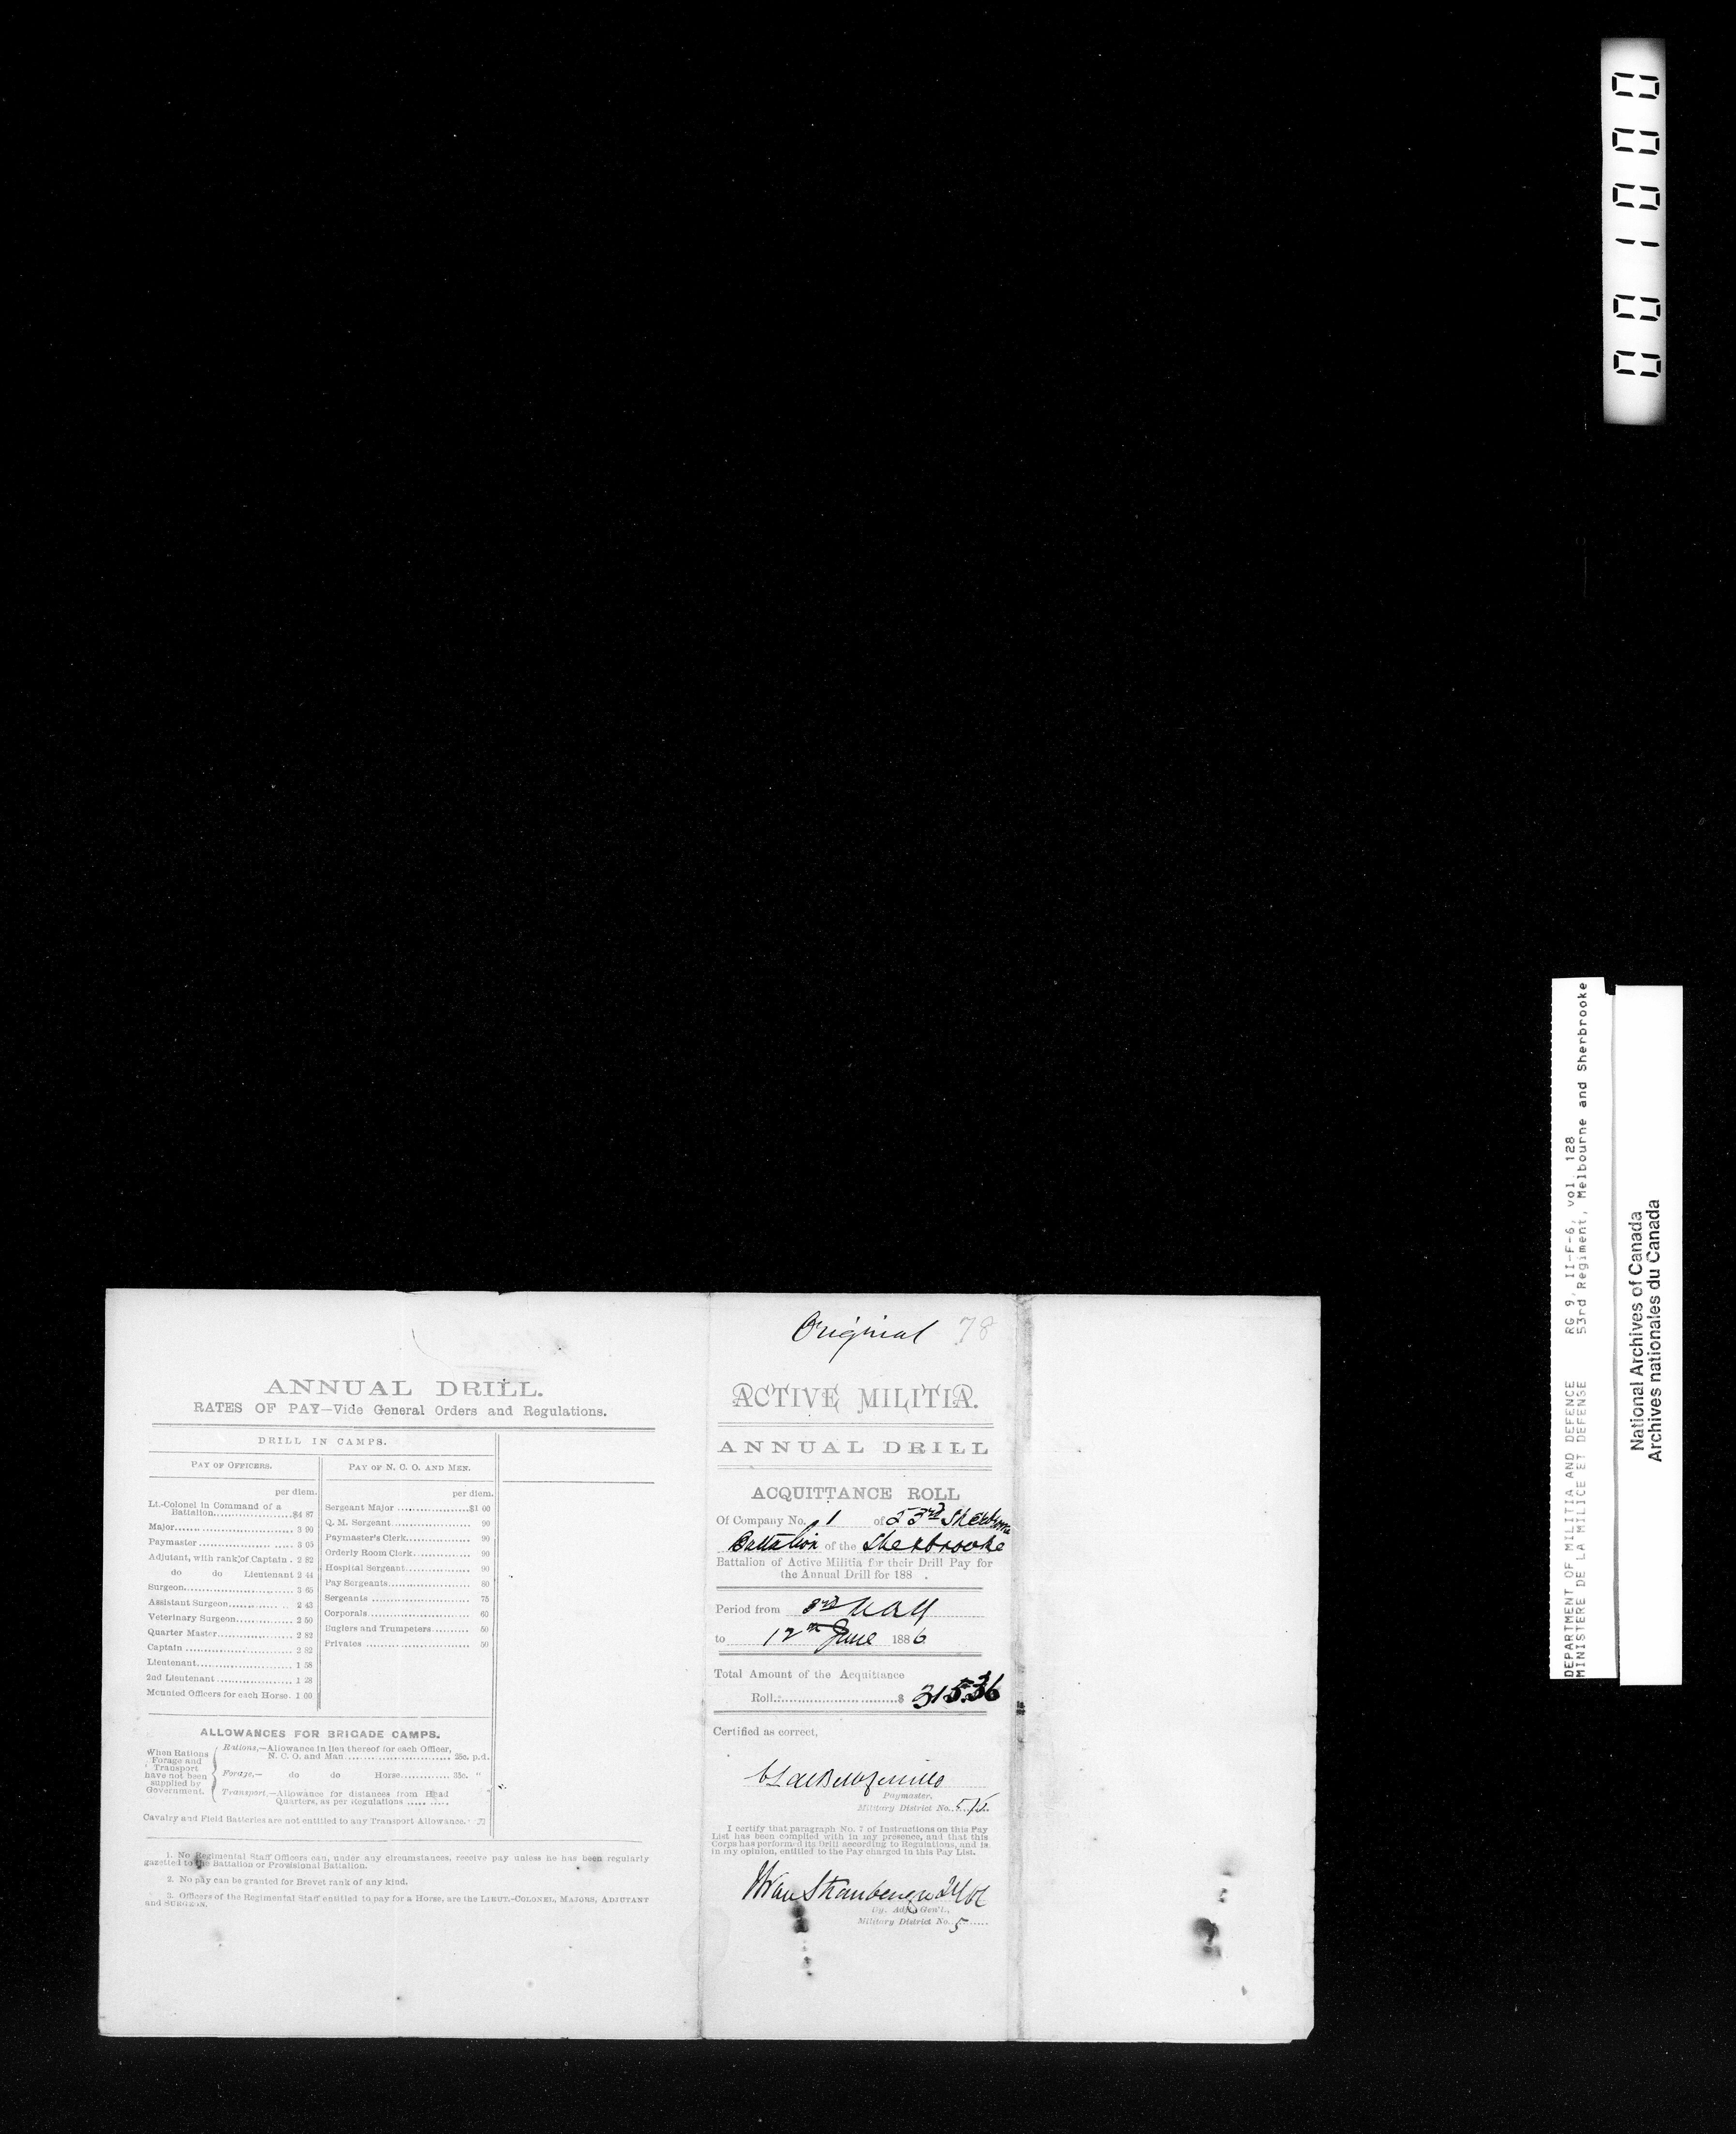 ANNUAL DRILL.
RATES OF PAY—Vide General Orders and Regulations.
DRILL IN CAMPS.
PAY OF OFFICERS.
per diem.
Lt.-Colonel in Command of a
Battalion..............$4 87
Major.............. 3 90
Paymaster .............. 3 05
Adjutant, with rank of Captain . 2 82
do do Lieutenant 2 44
Surgeon.............. 3 65
Assistant Surgeon.............. 2 43
Veterinary Surgeon.............. 2 50
Quarter Master.............. 2 82
Captain .............. 2 82
Lieutenant.............. 1 58
2nd Lieutenant .............. 1 28
Mounted Officers for each Horse. 1 00
PAY OF N. C. O. AND MEN.
per diem.
Sergeant Major ..............$1 00
Q. M. Sergeant.............. 90
Paymaster's Clerk.............. 90
Orderly Room Clerk.............. 90
Hospital Sergeant.............. 90
Pay Sergeants.............. 80
Sergeants .............. 75
Corporals.............. 60
Buglers and Trumpeters.......... 50
Privates .............. 50
ALLOWANCES FOR BRIGADE CAMPS.
When Rations
Forage and
Transport
have not been
supplied by
Government.
Rations,—Allowance in lieu thereof for each Officer,
N. C. O. and Man .............. 25c. p.d.
Forage,— do do Horse............ 35c. "
Transport,—Allowance for distances from Head
Quarters, as per Regulations ..... .....
Cavalry and Field Batteries are not entitled to any Transport Allowance.
1. No Regimental Staff Officers can, under any circumstances, receive pay unless he has been regularly
gazetted to the Battalion or Provisional Battalion.
2. No pay can be granted for Brevet rank of any kind.
3. Officers of the Regimental Staff entitled to pay for a Horse, are the LIEUT.-COLONEL, MAJORS, ADJUTANT
and SURGEON.
Original 78
ACTIVE MILITIA.
ANNUAL DRILL
ACQUITTANCE ROLL
Of Company No. 1 of 53rd Sherbrooke
Battalion of the Sherbrooke
Battalion of Active Militia for their Drill Pay for
the Annual Drill for 188 .
Period from 3rd
to 12th June 1886
Total Amount of the Acquittance
Roll..............$ 315.36
Certified as correct,
Paymaster,
Military District No. 5
I certify that paragraph No. 7 of Instructions on this Pay
List has been complied with in my presence, and that this
Corps has performed its Drill according to Regulations, and is,
in my opinion, entitled to the Pay charged in this Pay List.
Dy. Adjt. Gen'l.,
Military District No. 5
001000
DEPARTMENT OF MILITIA AND DEFENCE RG 9, II-F-6, vol. 128
MINISTERE DE LA MILICE ET DEFENSE 53rd Regiment, Melbourne and Sherbrooke
National Archives of Canada
Archives nationales du Canada